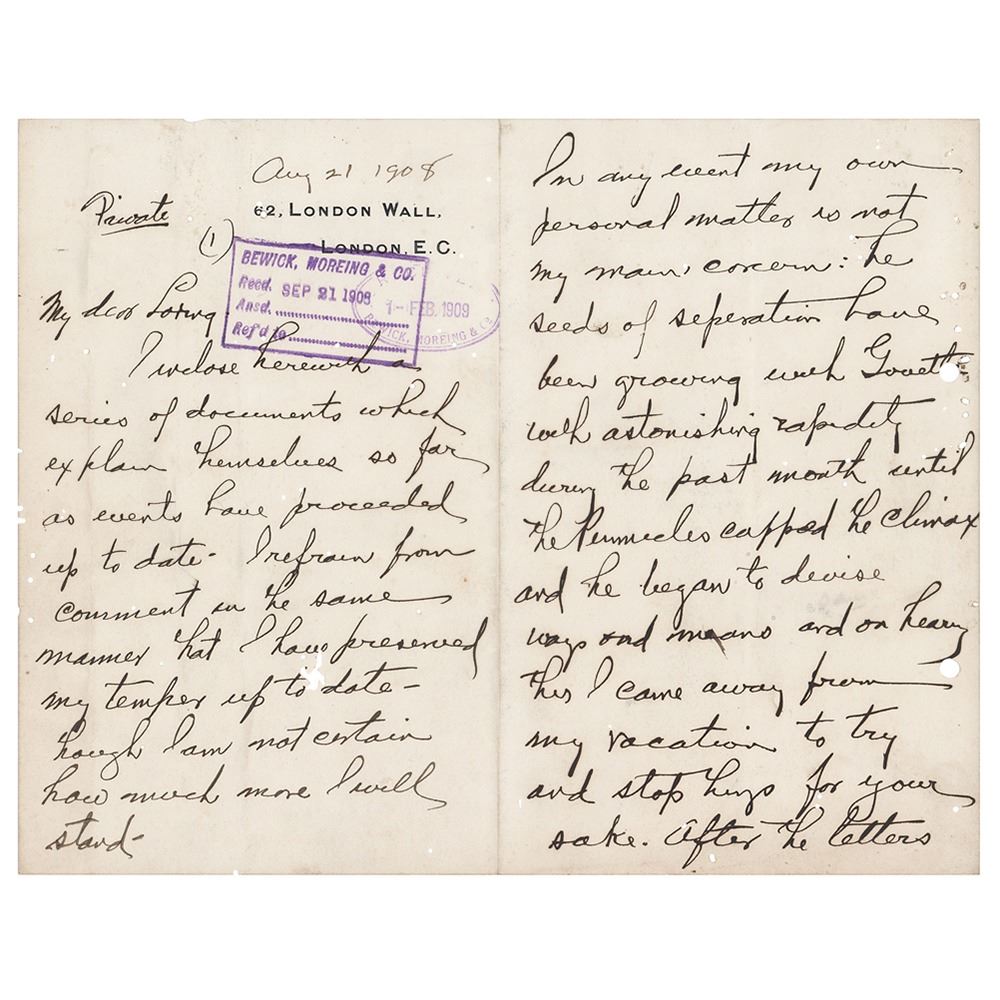 Aug 21 1908
Private
62, LONDON WALL,
(1)
LONDON, E.C.
BEWICK, MOREING & CO.
Recd. SEP 21 1908
Ansd.
Ref'd to
1 - FEB. 1909
BEWICK, MOREING & Co.
My dear Loring
I inclose herewith a
series of documents which
explain themselves so far
as events have proceeded
up to date - I refrain from
comment in the same
manner that I have preserved
my temper up to date -
though I am not certain
how much more I will
stand -
In any event my own
personal matter is not
my main concern: the
seeds of seperation have
been growing with Govett
with astonishing rapidity
during the past month until
the Pinnicles capped the climax
and he began to devise
ways and means and on hearing
this I came away from
my vacation to try
and stop things for your
sake. After the letters